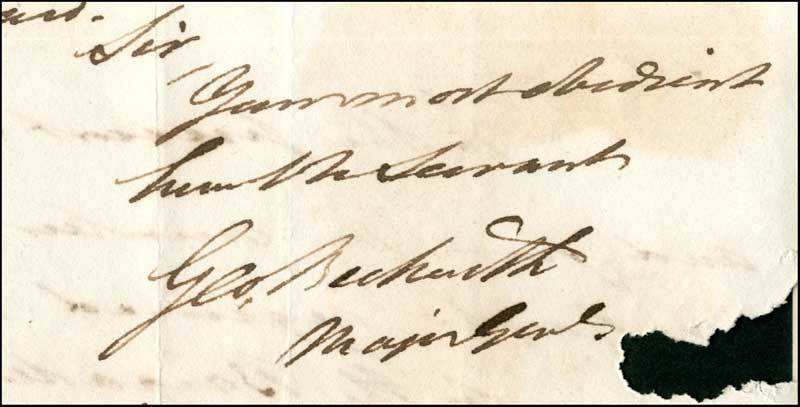 Sir,
Your most obedient
humble Servant
Geo. Beckwith
Major Genl